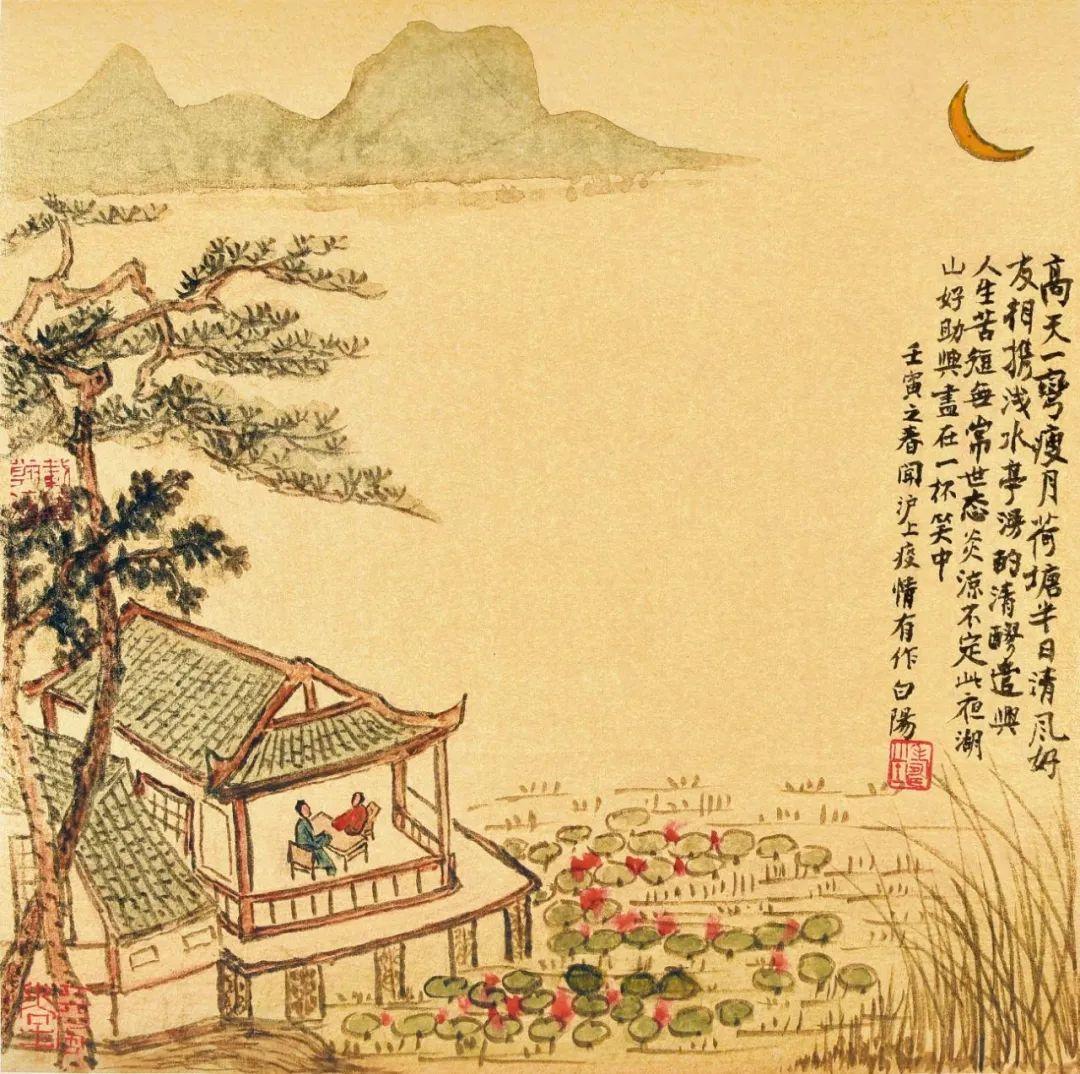 高天一彎瘦月荷塘半日清风好
友相携浅水亭湧的清醪遣興
人生苦短無常世态炎凉不定此夜湖
山好助興盡在一杯笑中
壬寅之春闻沪上疫情有作白陽